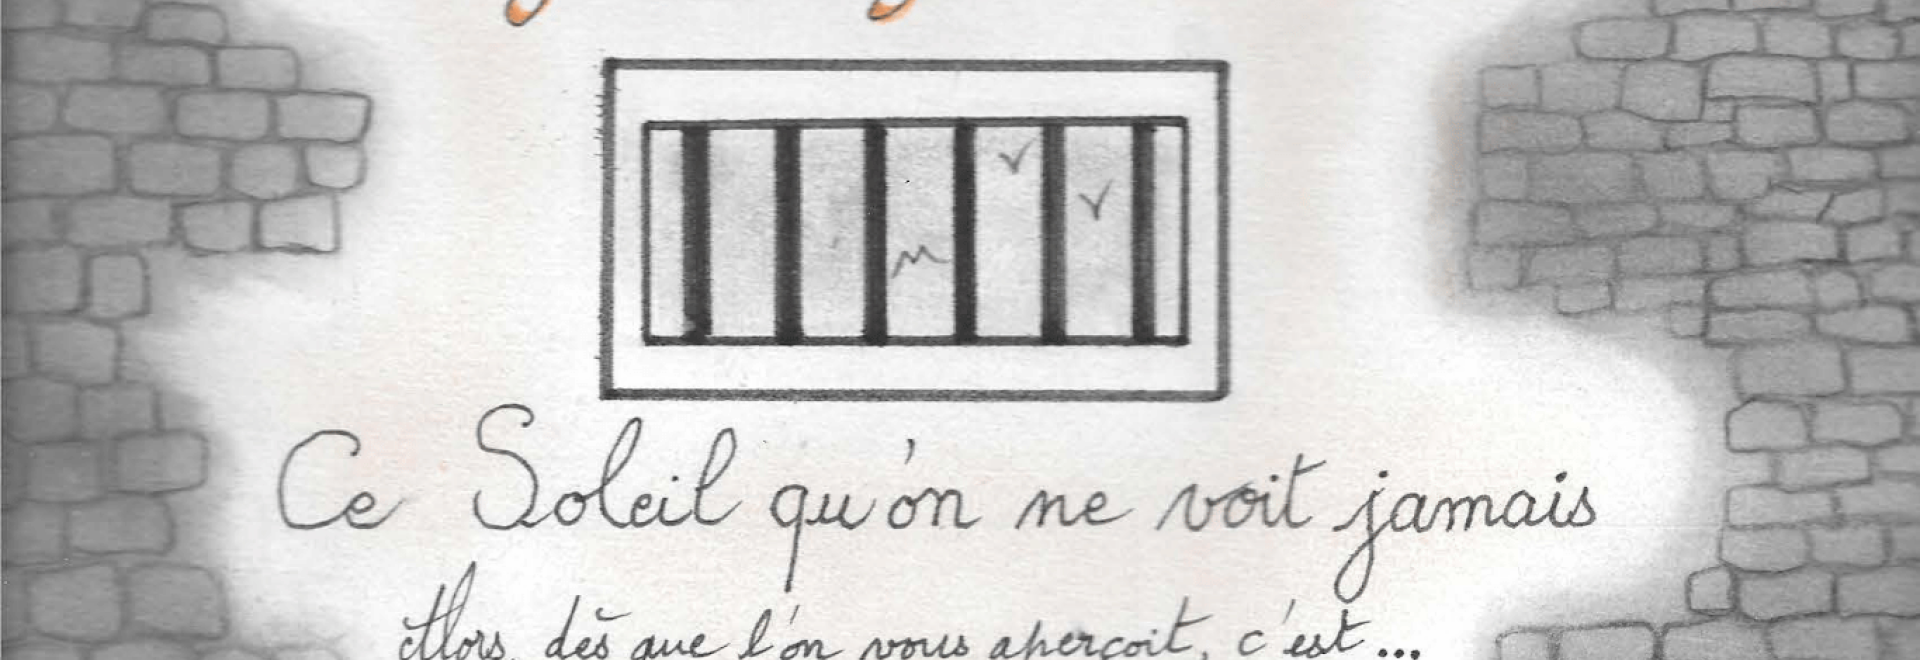 Ce Soleil qu'on ne voit jamais
Alors, dès que l'on vous aperçoit, c'est...